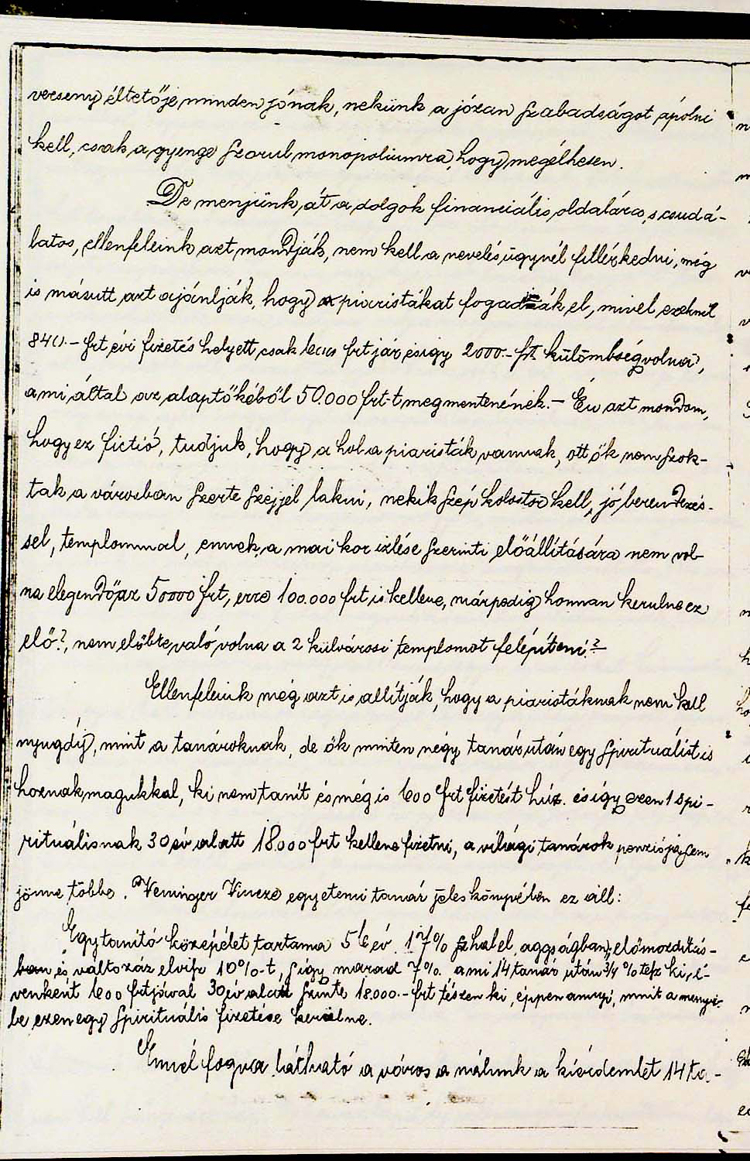 verseny éltetője minden jónak, nekünk a józan szabadságot ápolni
kell, csak a gyenge szorul monopoliumra, hogy megélhesen.
De menjünk át a dolgok financiális oldalára, s csudá-
latos, ellenfeleink azt mondják, nem kell a nevelés ügynél fillérkedni, még
is másutt azt ajánlják, hogy a piaristákat fogadják el, mivel ezeknél
840.- frt évi fizetés helyett csak frt jár és így 2000.- frt külömbség volna,
ami által az alaptőkéből 50.000 frt-t megmentenének. - Én azt mondom,
hogy ez fictió, tudjuk, hogy a hol a piaristák vannak, ott ők nem szok-
tak a városban szerte széjjel lakni, nekik szép kolostor kell, jó berendezés-
sel, templommal, ennek a mai kor izlése szerinti előállítására nem vol-
na elegendő az 50000 frt, erre 100.000 frt is kellene, már pedig honnan kerulne ez
elő?, nem előbbre való volna a 2 külvárosi templomot felépíteni?
Ellenfeleink még azt is allítják, hogy a piaristáknak nem kell
nyugdíj, mint a tanároknak, de ők minten négy tanár után egy Spirituálist is
hoznak magukkal, ki nem tanít és még is 600 frt fizetést húz. és így ezen 1 spi-
rituálisnak 30 év alatt 18.000 frt kellene fizetni, a világi tanárok penziója sem
jönne többe. Veninger Vincze egyetemi tanár jeles könyvében ez áll:
Egy tanító középélet tartama 56 év. 17% hal el, aggságban, előmozdítás-
ban és változás elvisz 10%-t, s így marad 7%. ami 14 tanár után % tesz ki, é-
venként 600 frtjával 30 év alatt szinte 18.000.- frt tészen ki, éppen annyi, mint a mennyi-
be ezen egy Spirituális fizetése kerülne.
Ennél fogva látható a város a nálunk a kiérdemlet 14 ta.-